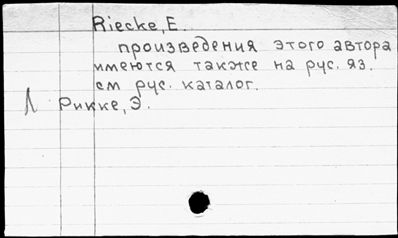 Riecke, E.
произведения этого автора
имеются также на рус. яз.
см рус. каталог.
Рикке, Э.